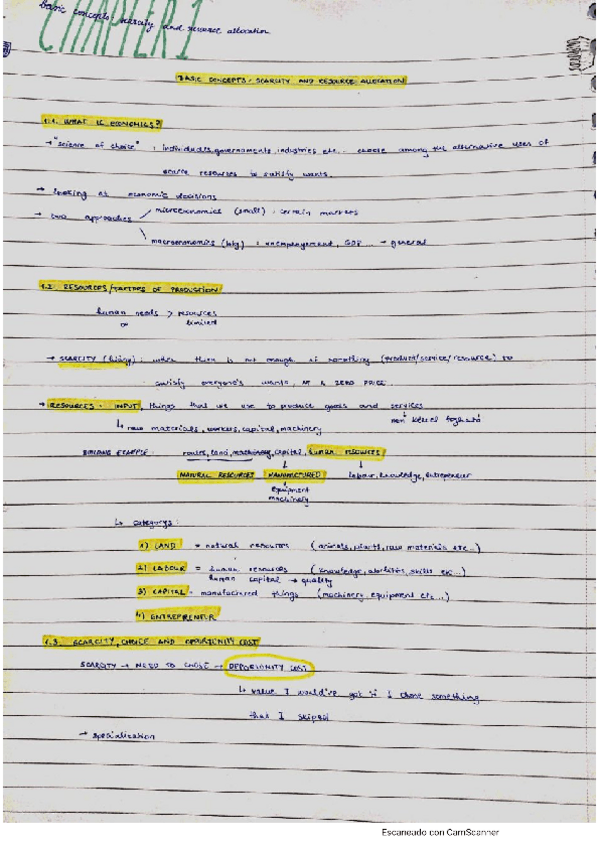 basic concepts: scarcity and resource allocation
CHAPTER 1
BASIC CONCEPTS - SCARCITY AND RESOURCE ALLOCATION
1.1. WHAT IS ECONOMICS?
→ "science of choice" : individuals, governments, industries etc... choose among the alternative uses of
scarce resources to satisfy wants.
→ looking at economic decisions
→ two approaches microeconomics (small) : certain markets
macroeconomics (big) : unemployement, GDP ... → general
1.2. RESOURCES/FACTORS OF PRODUCTION
human needs > resources
∞ limited
→ SCARCITY : when there is not enough of something (product/service/resource) to
satisfy everyone's wants, AT A ZERO PRICE.
→ RESOURCES - INPUT, things that we use to produce goods and services
↳ raw materials, workers, capital, machinery
EXAMPLE : land, machinery, capital, human resources
NATURAL RESOURCES MANUFACTURED labour, knowledge, entrepreneur
equipment
machinery
↳ categorys :
1) LAND = natural resources (animals, plants, raw materials etc...)
2) LABOUR = human resources (knowledge, abilities, skills etc...)
human capital → quality
3) CAPITAL - manufactured things (machinery, equipment etc...)
4) ENTREPRENEUR
1.3. SCARCITY, CHOICE AND OPPORTUNITY COST
SCARCITY → NEED TO CHOSE → OPPORTUNITY COST
↳ value I would've got if I chose something
that I skiped
→ specialization
Escaneado con CamScanner